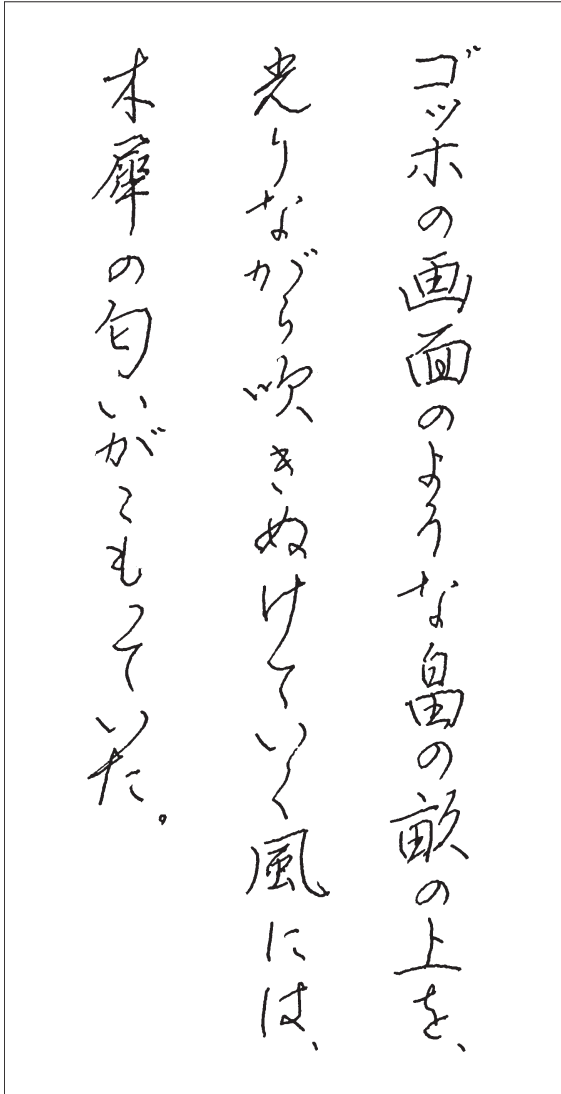 ゴッホの画面のような畠の畝の上を、
光りながら吹きぬけていく風には、
木犀の匂いがこもっていた。